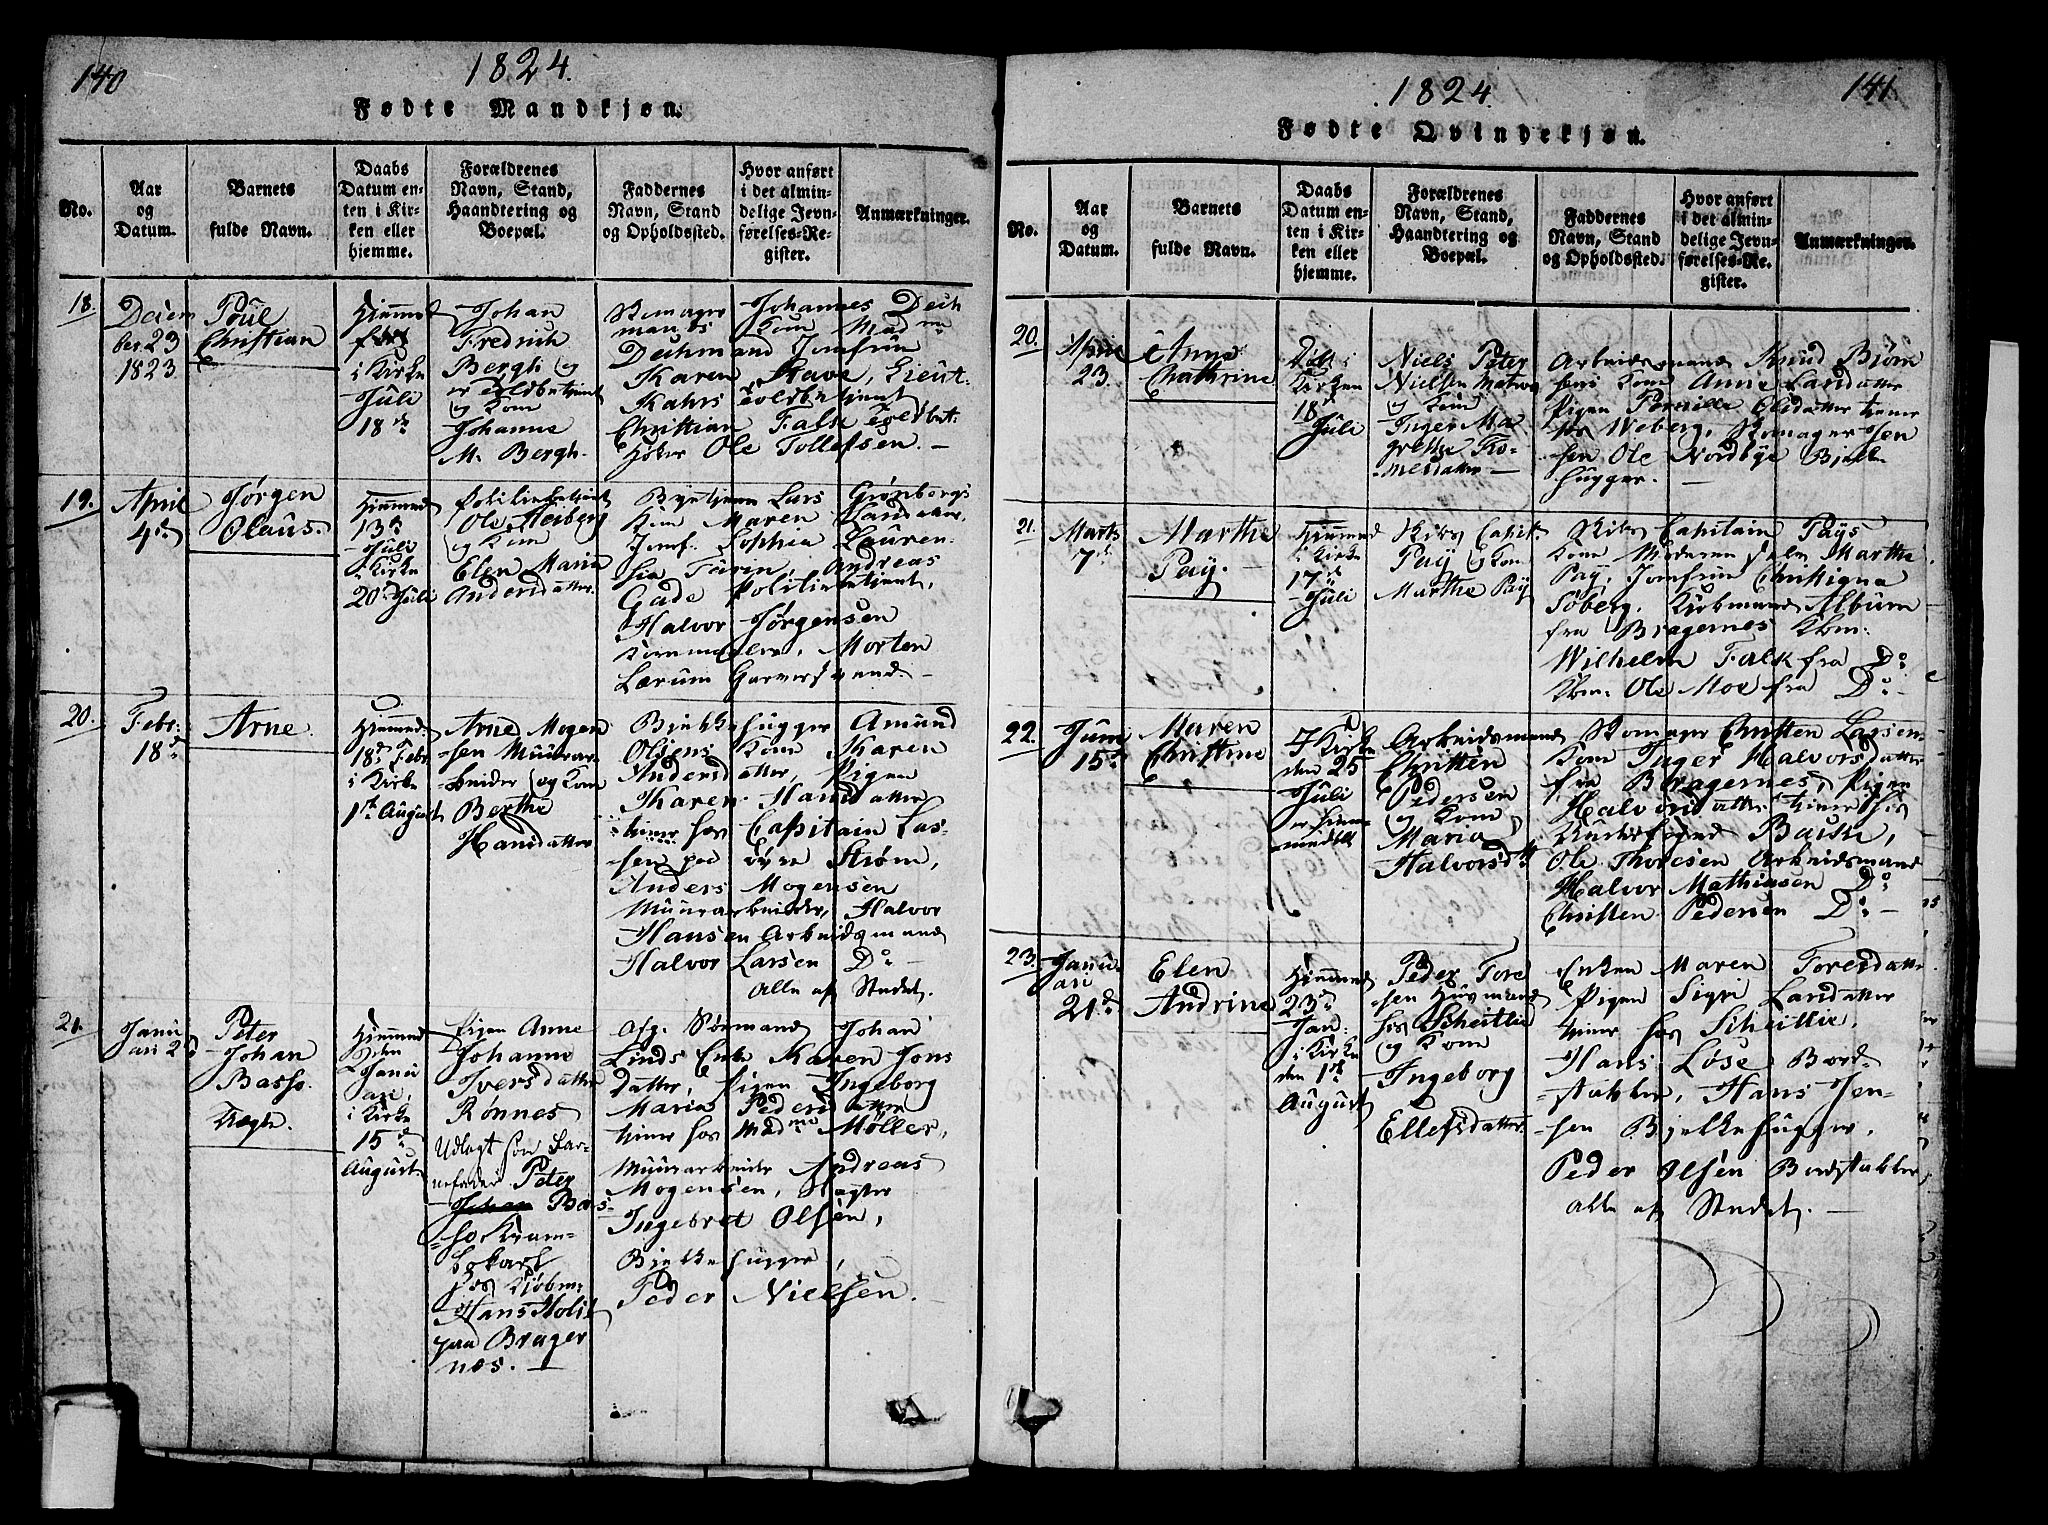 140
1824.
Fødte Mandkjøn.
No.
Aar
og
Datum.
Barnets
fulde Navn.
Daabs
Datum en-
ten i Kir-
ken eller
hjemme.
Forældrenes
Navn, Stand,
Haandtering og
Boepæl.
Faddernes
Navn, Stand
og Opholdssted.
Hvor anført
i det almin-
delige Jevn-
førelses-Re-
gister.
Anmærkninger.
18.
Decem
ber 23
1823
Poul
Christian
Hiemme
i Kirke
Juli
18de
Johan
Fredrich
Bergh og
Kone
Johanne
M. Bergh.
Skomager Johannes Deich
mans Kone Madme
Deichmand Jomfrue
Karen Rave, Lieut.
Kahrs
Christian Falk
Høker Ole Tollefsen. –
19.
April
4de
Jørgen
Olaus.
Hiemmed
13d
Juli
i Kirke
20de Juli
Politiebetient
Ole Meiberg
og Kone
Elen Maria
Andersdatter.
Bytiener Lars Grønbergs
Kone Maren Landatter.
Jomf. Sophia Lauren-
sia Andreas
Gade Politiebetient,
Halvor Jørgensen
Morten
Lærum Garversvend. –
20.
Febr.
18de
Arne.
Hiemmed
18de Febr
i Kirke
1ste August
Arne Mogen
sen Muurar-
beider og Kone
Berthe
Hansdatter
Bielkehugger Amund
Olsens Kone Karen
Andersdatter, Pigen
Karen Hansdatter
tiener hos Capitain Las-
sen paa øvre Strøm,
Anders Mogensen
Muurarbeider, Halvor
Hansen Arbeidsmand
Halvor Larsen Do –
Alle af Stedet.
21.
Janu
ari 2d
Peter
Johan
Basso.
Uægte.
Hiemmed
den
Janu
ari,
i Kirke
15de
August
Pigen Anne
Johanne
Iversdatter
Rønnes
Udlagt som Bar-
nefader Peter
Johan Bas-
so Kram-
hos Kiøbm:
Hans Holst
paa Brager
næs. –
Afg. Sørmand Johan
Linds Enke Karen Jons
Datter, Pigen Ingeborg
Maria Pedersdatter
tiener hos Madme Møller,
Muurarbeider Andreas
Mogensen, Slagter
Ingebret Olsen,
Bielkehugger,
Peder Nielsen.
141.
1824.
Fødte Qvindekjøn.
No.
Aar
og
Datum.
Barnets
fulde Navn.
Daabs
Datum en-
ten i Kir-
ken eller
hjemme.
Forældrenes
Navn, Stand,
Haandtering og
Boepæl.
Faddernes
Navn, Stand
og Opholdssted.
Hvor anført
i det almin-
delige Jevn-
førelses-Re-
gister.
Anmærkninger.
20.
April
23.
Anne
Cathrine
Døbt i
Kirken
18de
Juli
Niels Peter
Nielsen Matros
og Kone
Inger Ma
grethe Tho-
mesdatter –
Arbeidsmand Knud Biørn
sens Kone Anne Landatter
Pigen Pernille Olsdatter tiener
hos Weberg, Skomager Jen
sen Ole Nordbye Bielke
hugger. –
21.
Marts
7de
Marthe
Pay.
Hiemmed
i Kirke
17de
Juli
Skibs Capit.
Pay og Kone
Marthe Pay
Skibs Capitain Pays
Kone Moderen selv Marthe
Pay, Jomfrue Christigna
Søberg, Kiøbmand Album
fra Bragernes Kbm.
Wilhelm Falk fra Do
Kbm. Ole Moe fra Do –
22.
Juni
15de
Maren
Christine
I Kirke
den 25
Juli
er hiem-
medøbt
Arbeidsmand
Christen
Pedersen
og Kone
Maria
Halvorsdtt
Skomager Christen Larsen
Kone Inger Halvorsdatter
fra Bragernes, Pigen
Halvorsdatter tiener hos
Bausk,
Ole Thoresen Arbeidsmand
Halvor Mathiasen Do
Christen Pedersen Do –
23.
Janu
ari
21de
Elen
Andrine
Hiemmed
23de
Jan-
i Kirke
den 1ste
August
Peder Tore
sen Huusmand
hos Scheitlie
og Kone
Ingeborg
Ellefsdatter.
Enken Maren Toresdatter
Pigen Sigri Landatter
tiener hos Scheitlie,
Hans Løse Bord
stabler, Hans Jen-
sen Bielkehugger,
Peder Olsen Bordstabler
Alle af Stedet. –